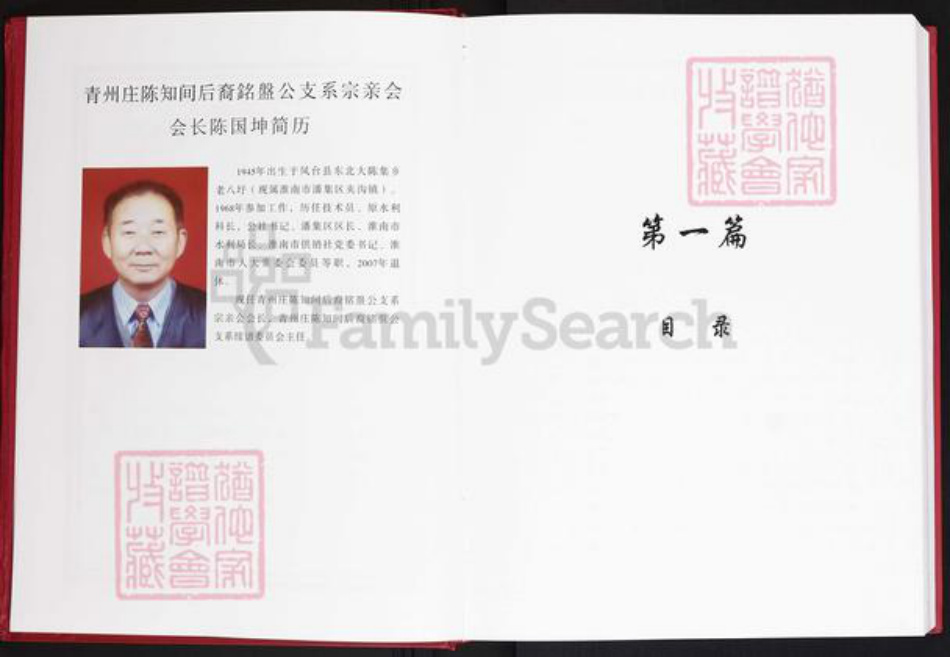 青州庄陈知间后裔銘盤公支系宗亲会
会长陈国坤简历
1945年出生于凤台县东北大陈集乡
老八圩（现属淮南市潘集区夹沟镇）。
1968年参加工作，历任技术员、原水利
科长、公社书记、潘集区区长、淮南市
水利局长、淮南市供销社党委书记、淮
南市人大常委会委员等职。2007年退
休。
现任青州庄陈知间后裔銘盤公支系
宗亲会会长，青州庄陈知间后裔銘盤公
支系续谱委员会主任。
猶他家
譜學會
收藏
第一篇
目录
猶他家
譜學會
收藏
FamilySearch